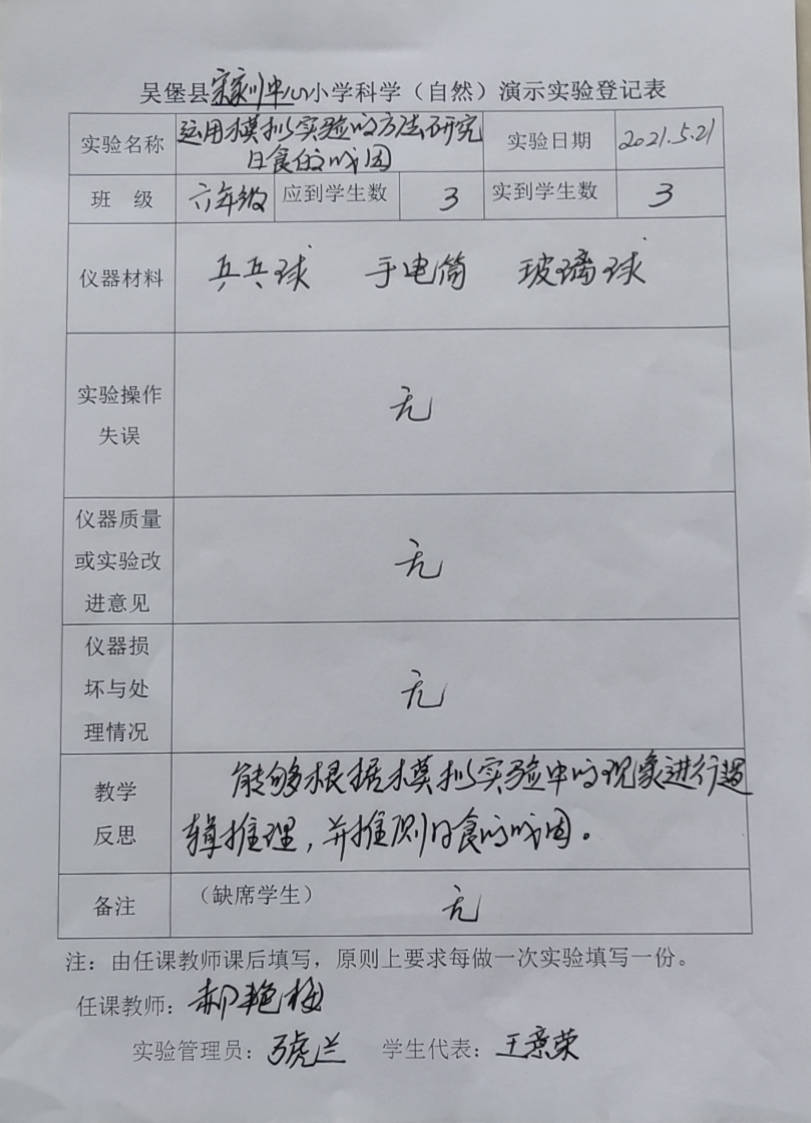 吴堡县宋家川中心小学科学（自然）演示实验登记表
实验名称 运用模拟实验的方法研究 实验日期 2021.5.21
日食的成因
班 级 六年级 应到学生数 3 实到学生数 3
仪器材料 乒乓球 手电筒 玻璃球
实验操作
失误 无
仪器质量
或实验改 无
进意见
仪器损
坏与处 无
理情况
教学 能够根据模拟实验中的现象进行逻
反思 辑推理，并推测日食的成因。
备注 （缺席学生） 无
注：由任课教师课后填写，原则上要求每做一次实验填写一份。
任课教师：郝艳梅
实验管理员：虎兰 学生代表：王意荣